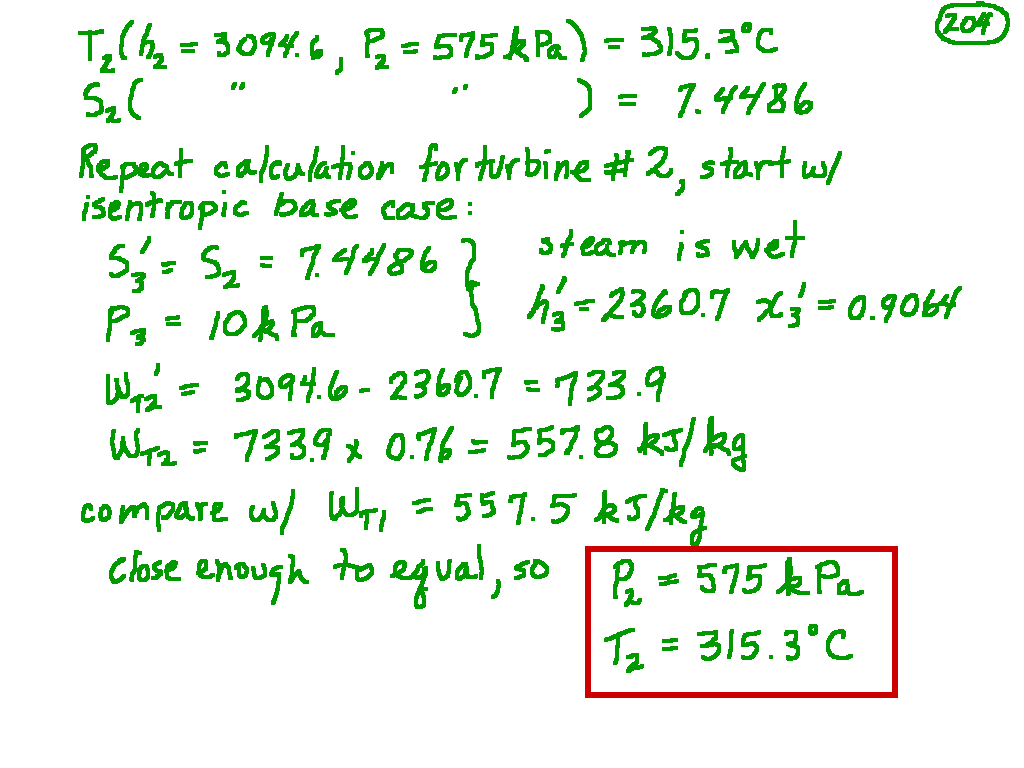 204
T₂(h₂ = 3094.6, P₂ = 575 kPa) = 315.3°C
S₂( " " ) = 7.4486
Repeat calculation for turbine #2, start w/
isentropic base case:
S₃' = S₂ = 7.4486 } steam is wet
P₃ = 10 kPa h₃' = 2360.7 x₃' = 0.9064
W_T2' = 3094.6 - 2360.7 = 733.9
W_T2 = 733.9 x 0.76 = 557.8 kJ/kg
compare w/ W_T1 = 557.5 kJ/kg
close enough to equal, so
P₂ = 575 kPa
T₂ = 315.3°C